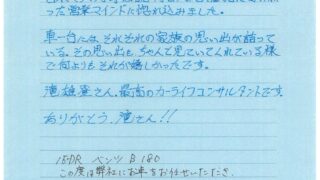 った営業マインドに惚れ込みました。
車一台には、それぞれの家族の思い出が詰って
いる。その思い出も、ちゃんと見ていてくれている様
で何よりもそれが嬉しかったです。
さん、最高のカーライフコンサルタントです。
ありがとう、滝さん!!
ベンツ B180
この度は弊社にお車をお任せいただき